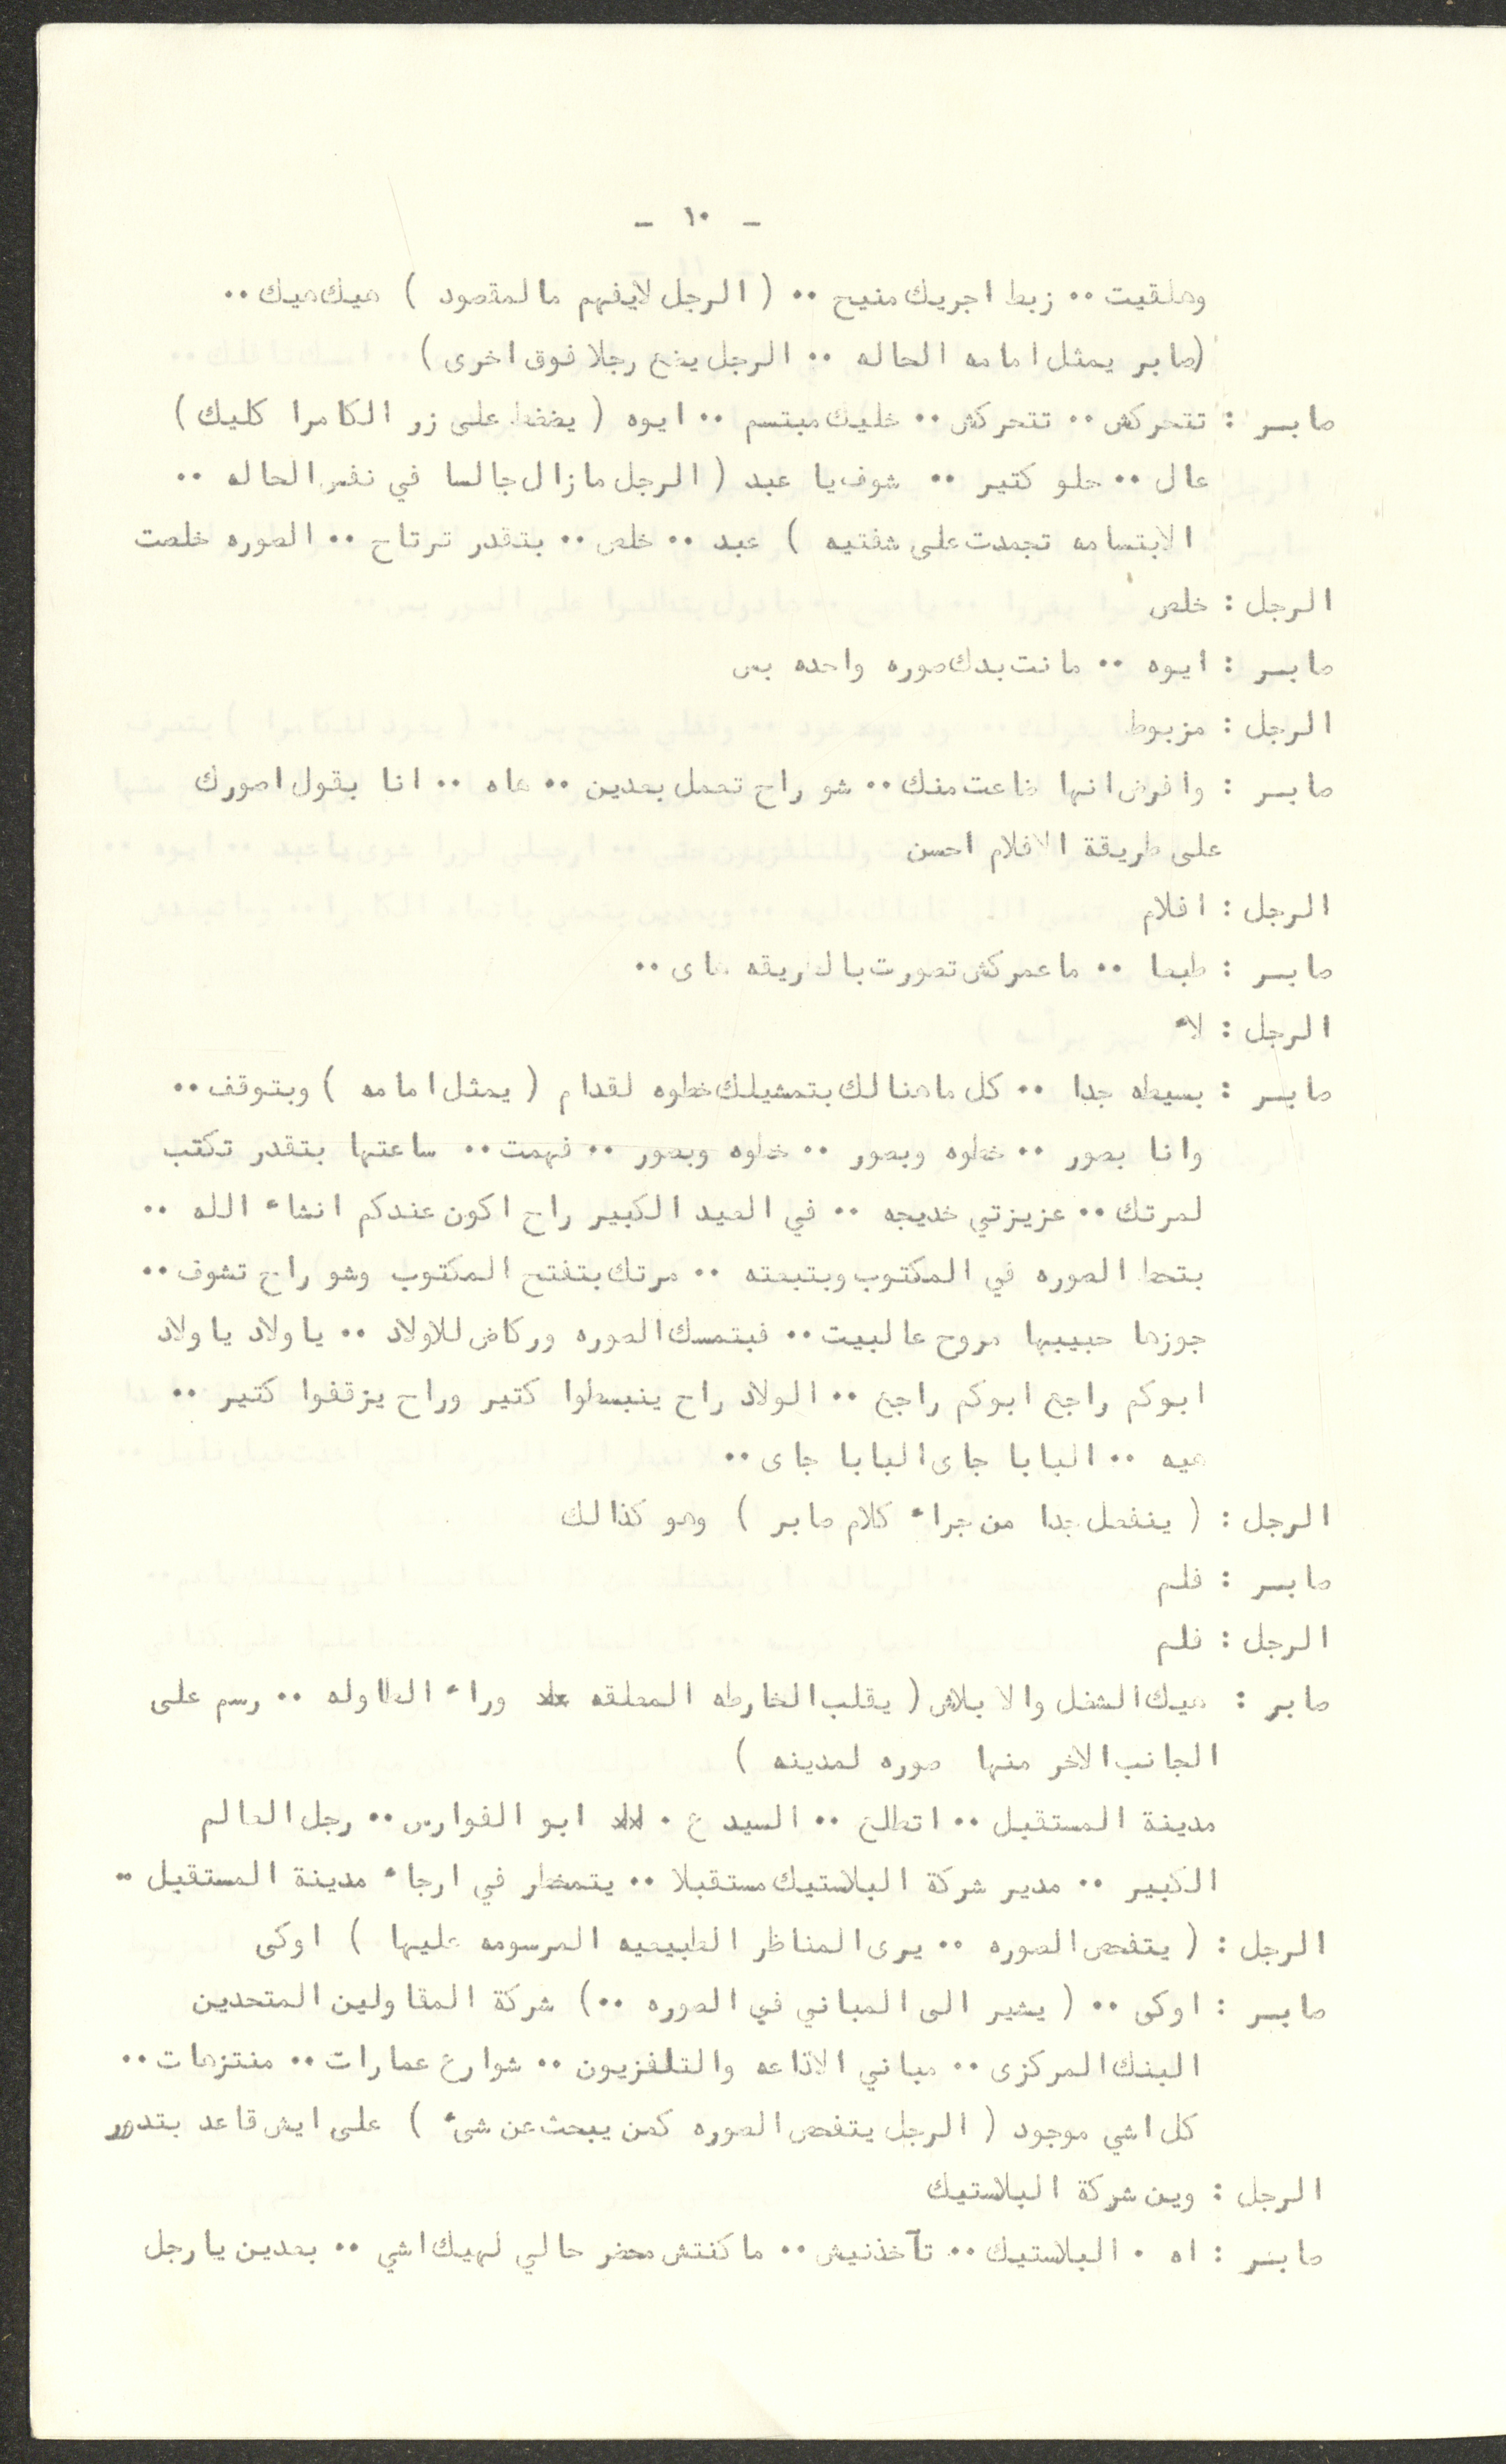 - ١٠ -
وهلقيت .. زبط اجريك منيح .. ( الرجل لايفهم مالمقصود ) هيك هيك ..
(صابر يمثل امامه الحاله .. الرجل يضع رجلا فوق اخرى )
صابر : تتحركش .. تتحركش .. خليك مبتسم .. ايوه ( يضغط على زر الكامرا كليك )
عال .. حلو كتير .. شوف يا عبد ( الرجل مازال جالسا في نفس الحاله ..
الابتسامه تجمدت على شفتيه ) عبد .. خلص .. بتقدر ترتاح .. الصوره خلصت
الرجل : خلص
صابر : ايوه .. مانت بدك صوره واحده بس
الرجل : مزبوط
صابر : وافرض انها ضاعت منك .. شو راح تعمل بعدين .. هاه .. انا بقول اصورك
على طريقة الافلام احسن
الرجل : افلام
صابر : طبعا .. ماعمركش تصورت بالطريقه هاى ..
الرجل : لاء
صابر : بسيطه جدا .. كل ماهنالك بتمشيلك خطوه لقدام ( يمثل امامه ) وبتوقف ..
وانا بصور .. خطوه وبصور .. خطوه وبصور .. فهمت .. ساعتها بتقدر تكتب
لمرتك .. عزيزتي خديجه .. في العيد الكبير راح اكون عندكم انشاء الله ..
بتحط الصوره في المكتوب وبتبعته .. مرتك بتفتح المكتوب وشو راح تشوف ..
جوزها حبيبها مروح عالبيت .. فبتمسك الصوره وركاض للاولاد .. ياولاد ياولاد
ابوكم راجع ابوكم راجع .. الولاد راح ينبسطوا كتير وراح يزقفوا كتير ..
هيه .. البابا جاى البابا جاى ..
الرجل : ( ينفعل جدا من جراء كلام صابر ) وهو كذالك
صابر : فلم
الرجل : فلم
صابر : هيك الشغل والا بلاش ( يقلب الخارطه المعلقه وراء الطاوله .. رسم على
الجانب الاخر منها صوره لمدينه )
مدينة المستقبل .. اتطلع .. السيد ع . ابو الفوارس .. رجل العالم
الكبير .. مدير شركة البلاستيك مستقبلا .. يتمخطر في ارجاء مدينة المستقبل ..
الرجل : ( يتفحص الصوره .. يرى المناظر الطبيعيه المرسومه عليها ) اوكى
صابر : اوكى .. ( يشير الى المباني في الصوره .. ) شركة المقاولين المتحدين
البنك المركزى .. مباني الاذاعه والتلفزيون .. شوارع عمارات .. منتزهات ..
كل اشي موجود ( الرجل يتفحص الصوره كمن يبحث عن شىء ) على ايش قاعد بتدور
الرجل : وين شركة البلاستيك
صابر : اه . البلاستيك .. تآخذنيش .. ماكنتش محضر حالي لهيك اشي .. بعدين يارجل